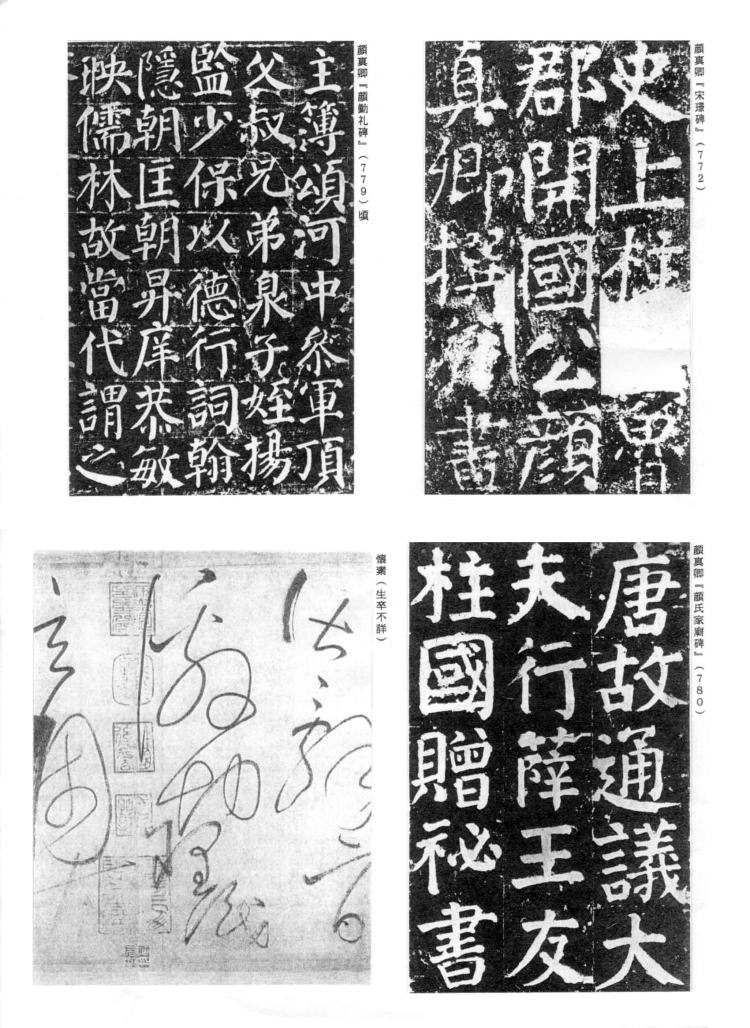 顔真卿『宋璟碑』（772）
史上柱 魯
郡開國公顔
真卿撰 書
顔真卿『顔勤礼碑』（779）頃
主簿頌河中叅軍頂
父叔兄弟泉子姪揚
監少保以德行詞翰
隱朝匡朝昇庠恭敏
映儒林故當代謂之
顔真卿『顔氏家廟碑』（780）
唐故通議大
夫行薛王友
柱國贈祕書
懐素（生卒不詳）
辭旨
激切理識
玄奥